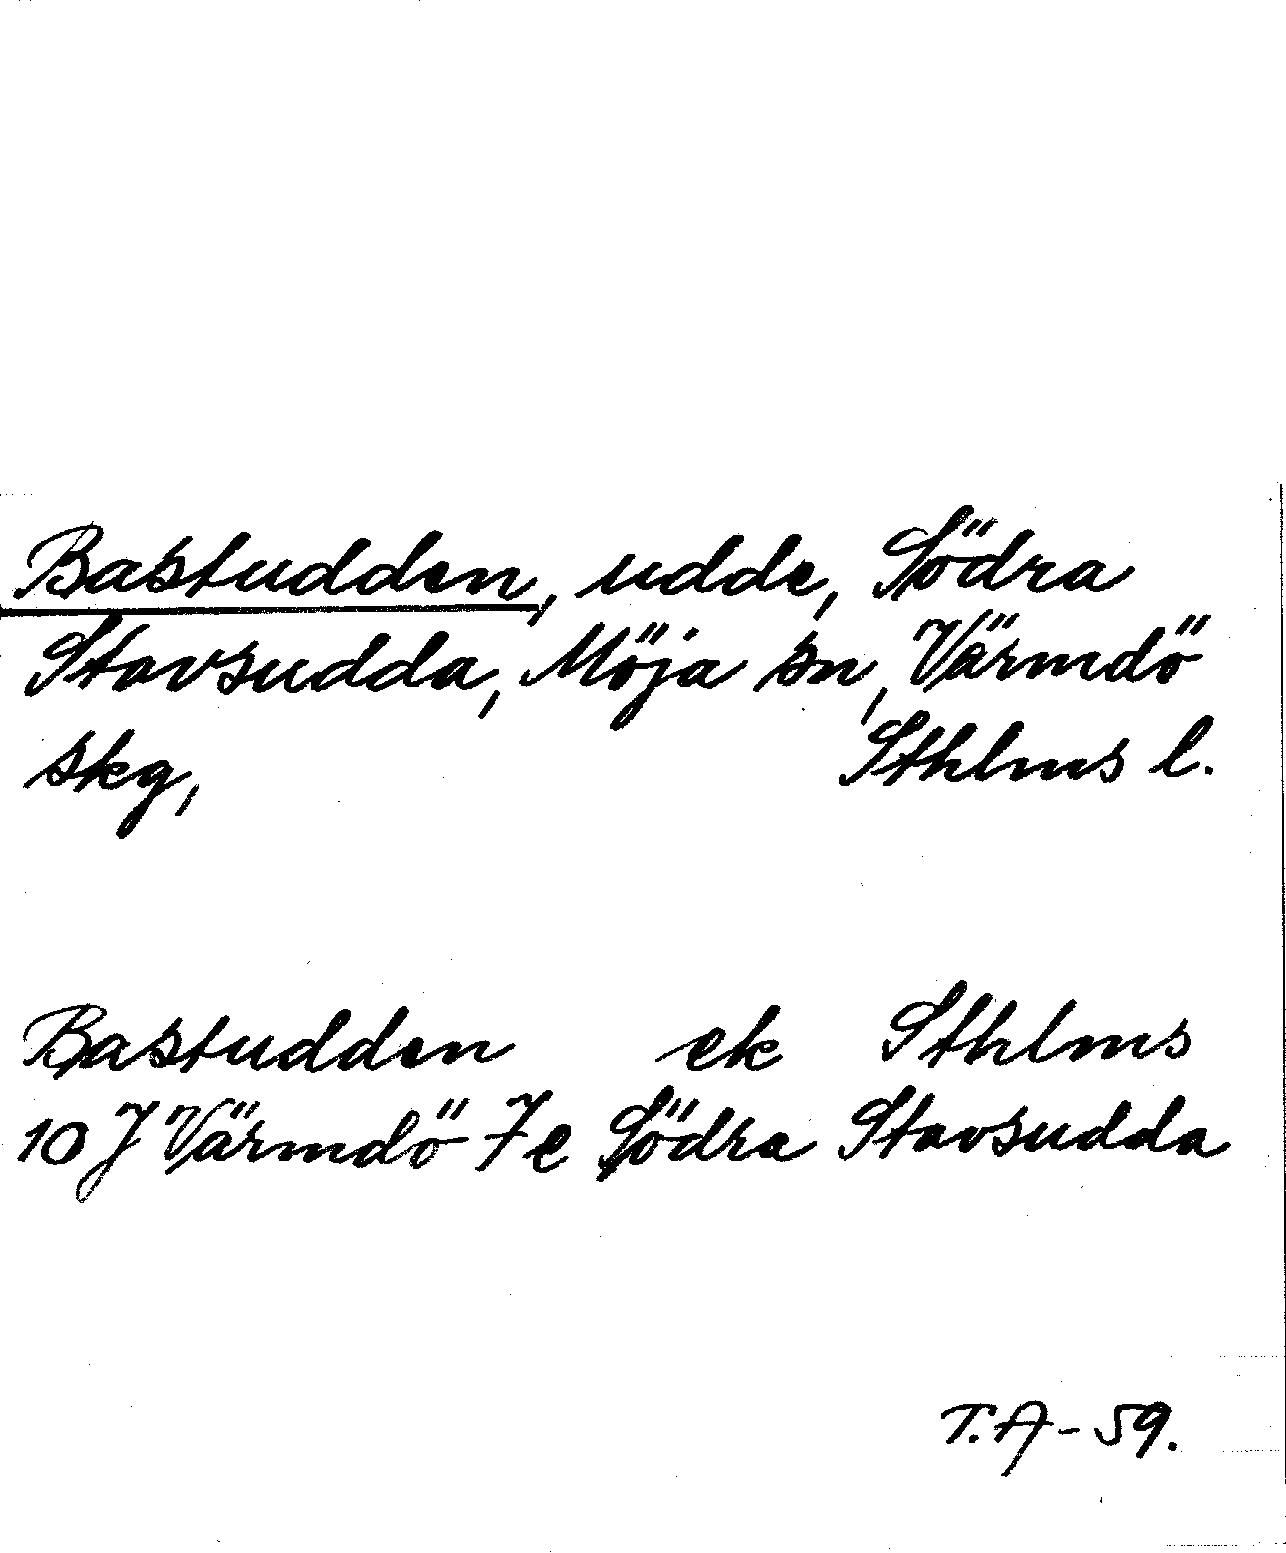 Bastudden, udde, Södra
Stavsudda, Möja sn, Värmdö
skg, Sthlms l.
Bastudden ek Sthlms
10 J Värmdö 7 e Södra Stavsudda
T.A-59.